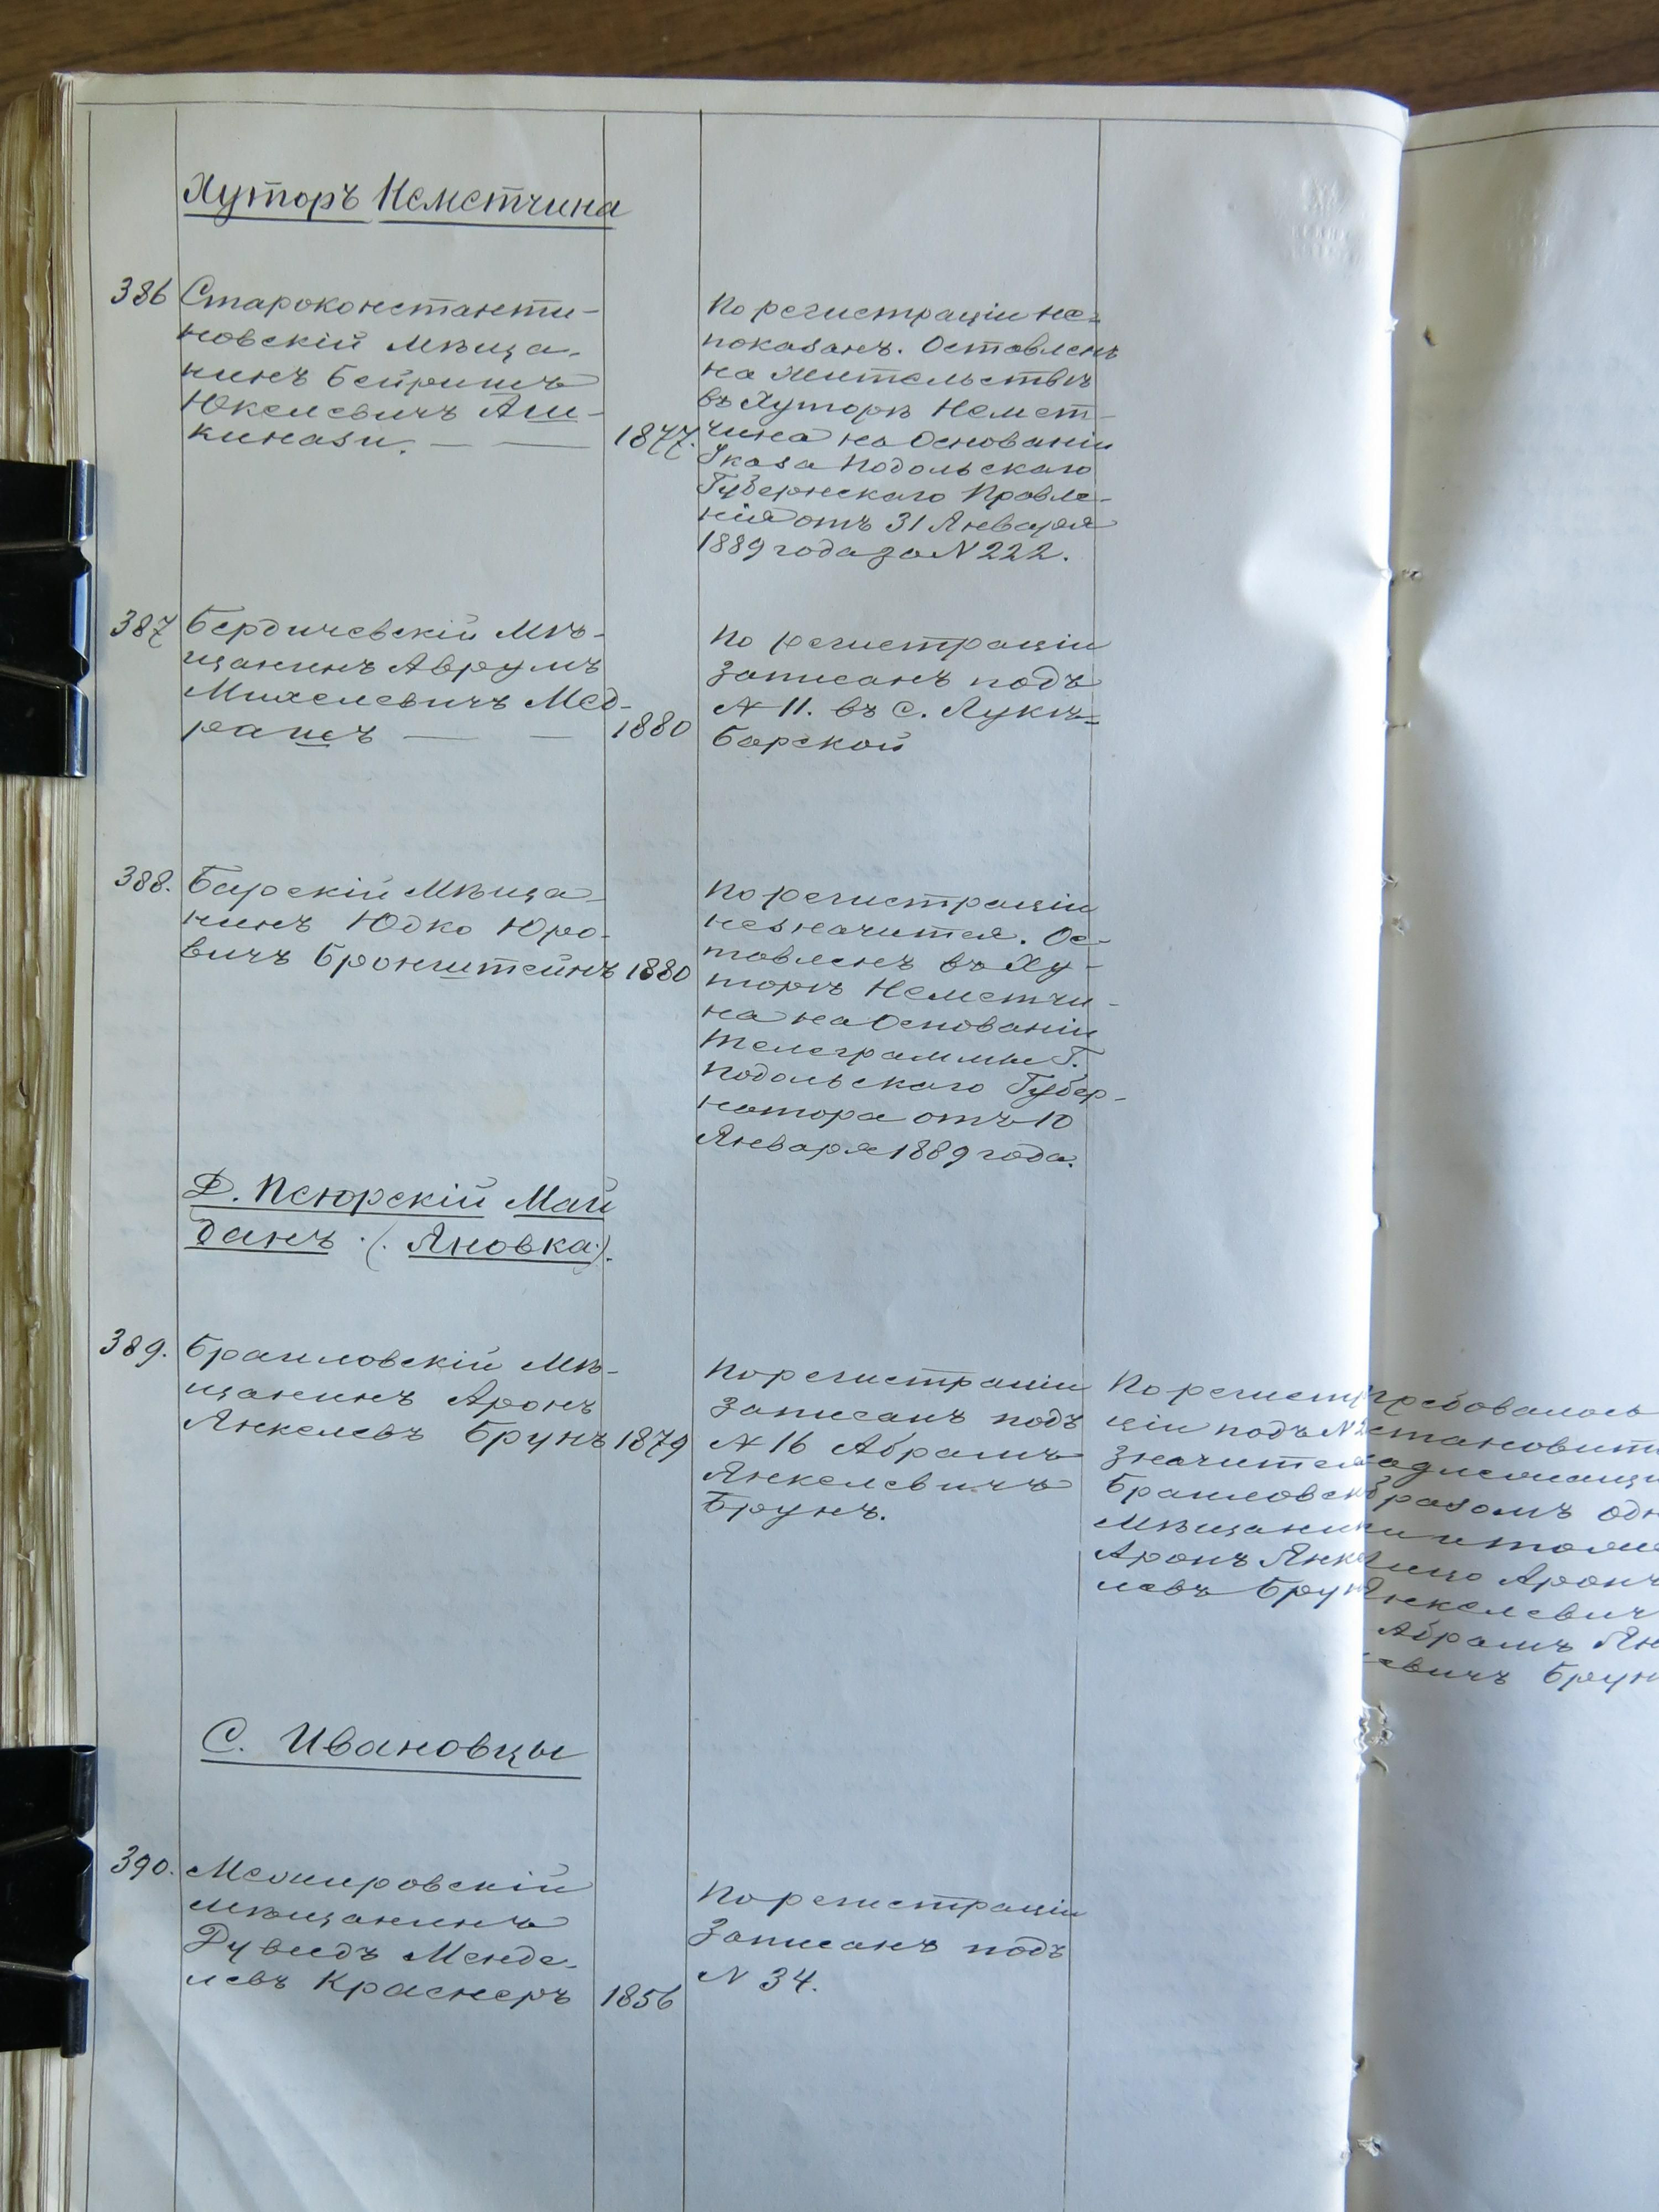 Хуторъ Неметчина
386
Староконстанти-
новскій Мѣща-
нинъ Бейришъ
Юкелевичъ Аш-
кинази. — —
1877.
По регистраціи не-
показанъ. Оставленъ
на жительствѣ
въ Хуторѣ Немет-
чина на Основаніи
Указа Подольскаго
Губернскаго Правле-
нія отъ 31 Января
1889 года за N 222.
387
Бердичевскій Мѣ-
щанинъ Аврумъ
Михелевичъ Мед-
рашъ — —
1880
По регистраціи
записанъ подъ
N 11. въ С. Лукѣ-
Барской
388.
Барскій Мѣща-
нинъ Юдко Юро-
вичъ Бронштейнъ
1880
По регистраціи
незначится. Ос-
тавленъ въ Ху-
торѣ Неметчи-
на на Основаніи
телеграммы Г.
Подольскаго Губер-
натора отъ 10
Января 1889 года.
Д. Псюрскій Май
данъ (Яновка).
389.
Браиловскій Мѣ-
щанинъ Аронъ
Янкелевъ Брунъ
1879
По регистраціи
записанъ подъ
N 16 Абрамъ
Янкелевичъ
Брунъ.
По регистр
ціи подъ N
значится
Браиловск
Мѣщанин
Аронъ Янке
левъ Брун
требовалось
становить
разомъ одн
лицо Аронъ
Янкелевич
Абрамъ Ян
евичъ Брун
С. Ивановцы
390.
Межировскій
мѣщанинъ
Дувидъ Менде-
левъ Краснеръ
1856
По регистраціи
Записанъ подъ
N 34.